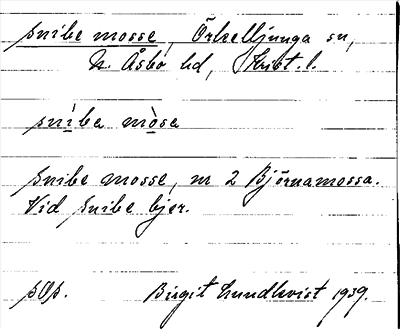 Snibe mosse, Örkelljunga sn,
N. Åsbo hd, Krist. l.
snìbe mòse
Snibe mosse, nr 2 Björnamossa.
Vid Snibe bjer.
pOp. Birgit Lundkvist 1939.